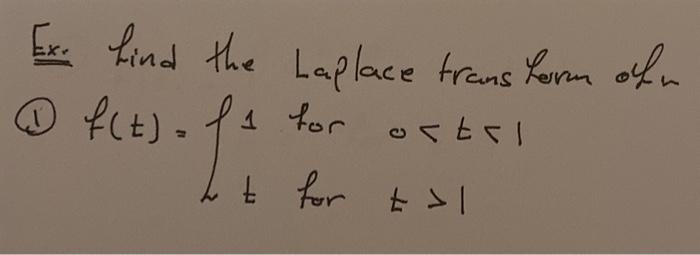 Ex. find the Laplace transform of
① f(t) = { 1 for 0 < t < 1
t for t > 1